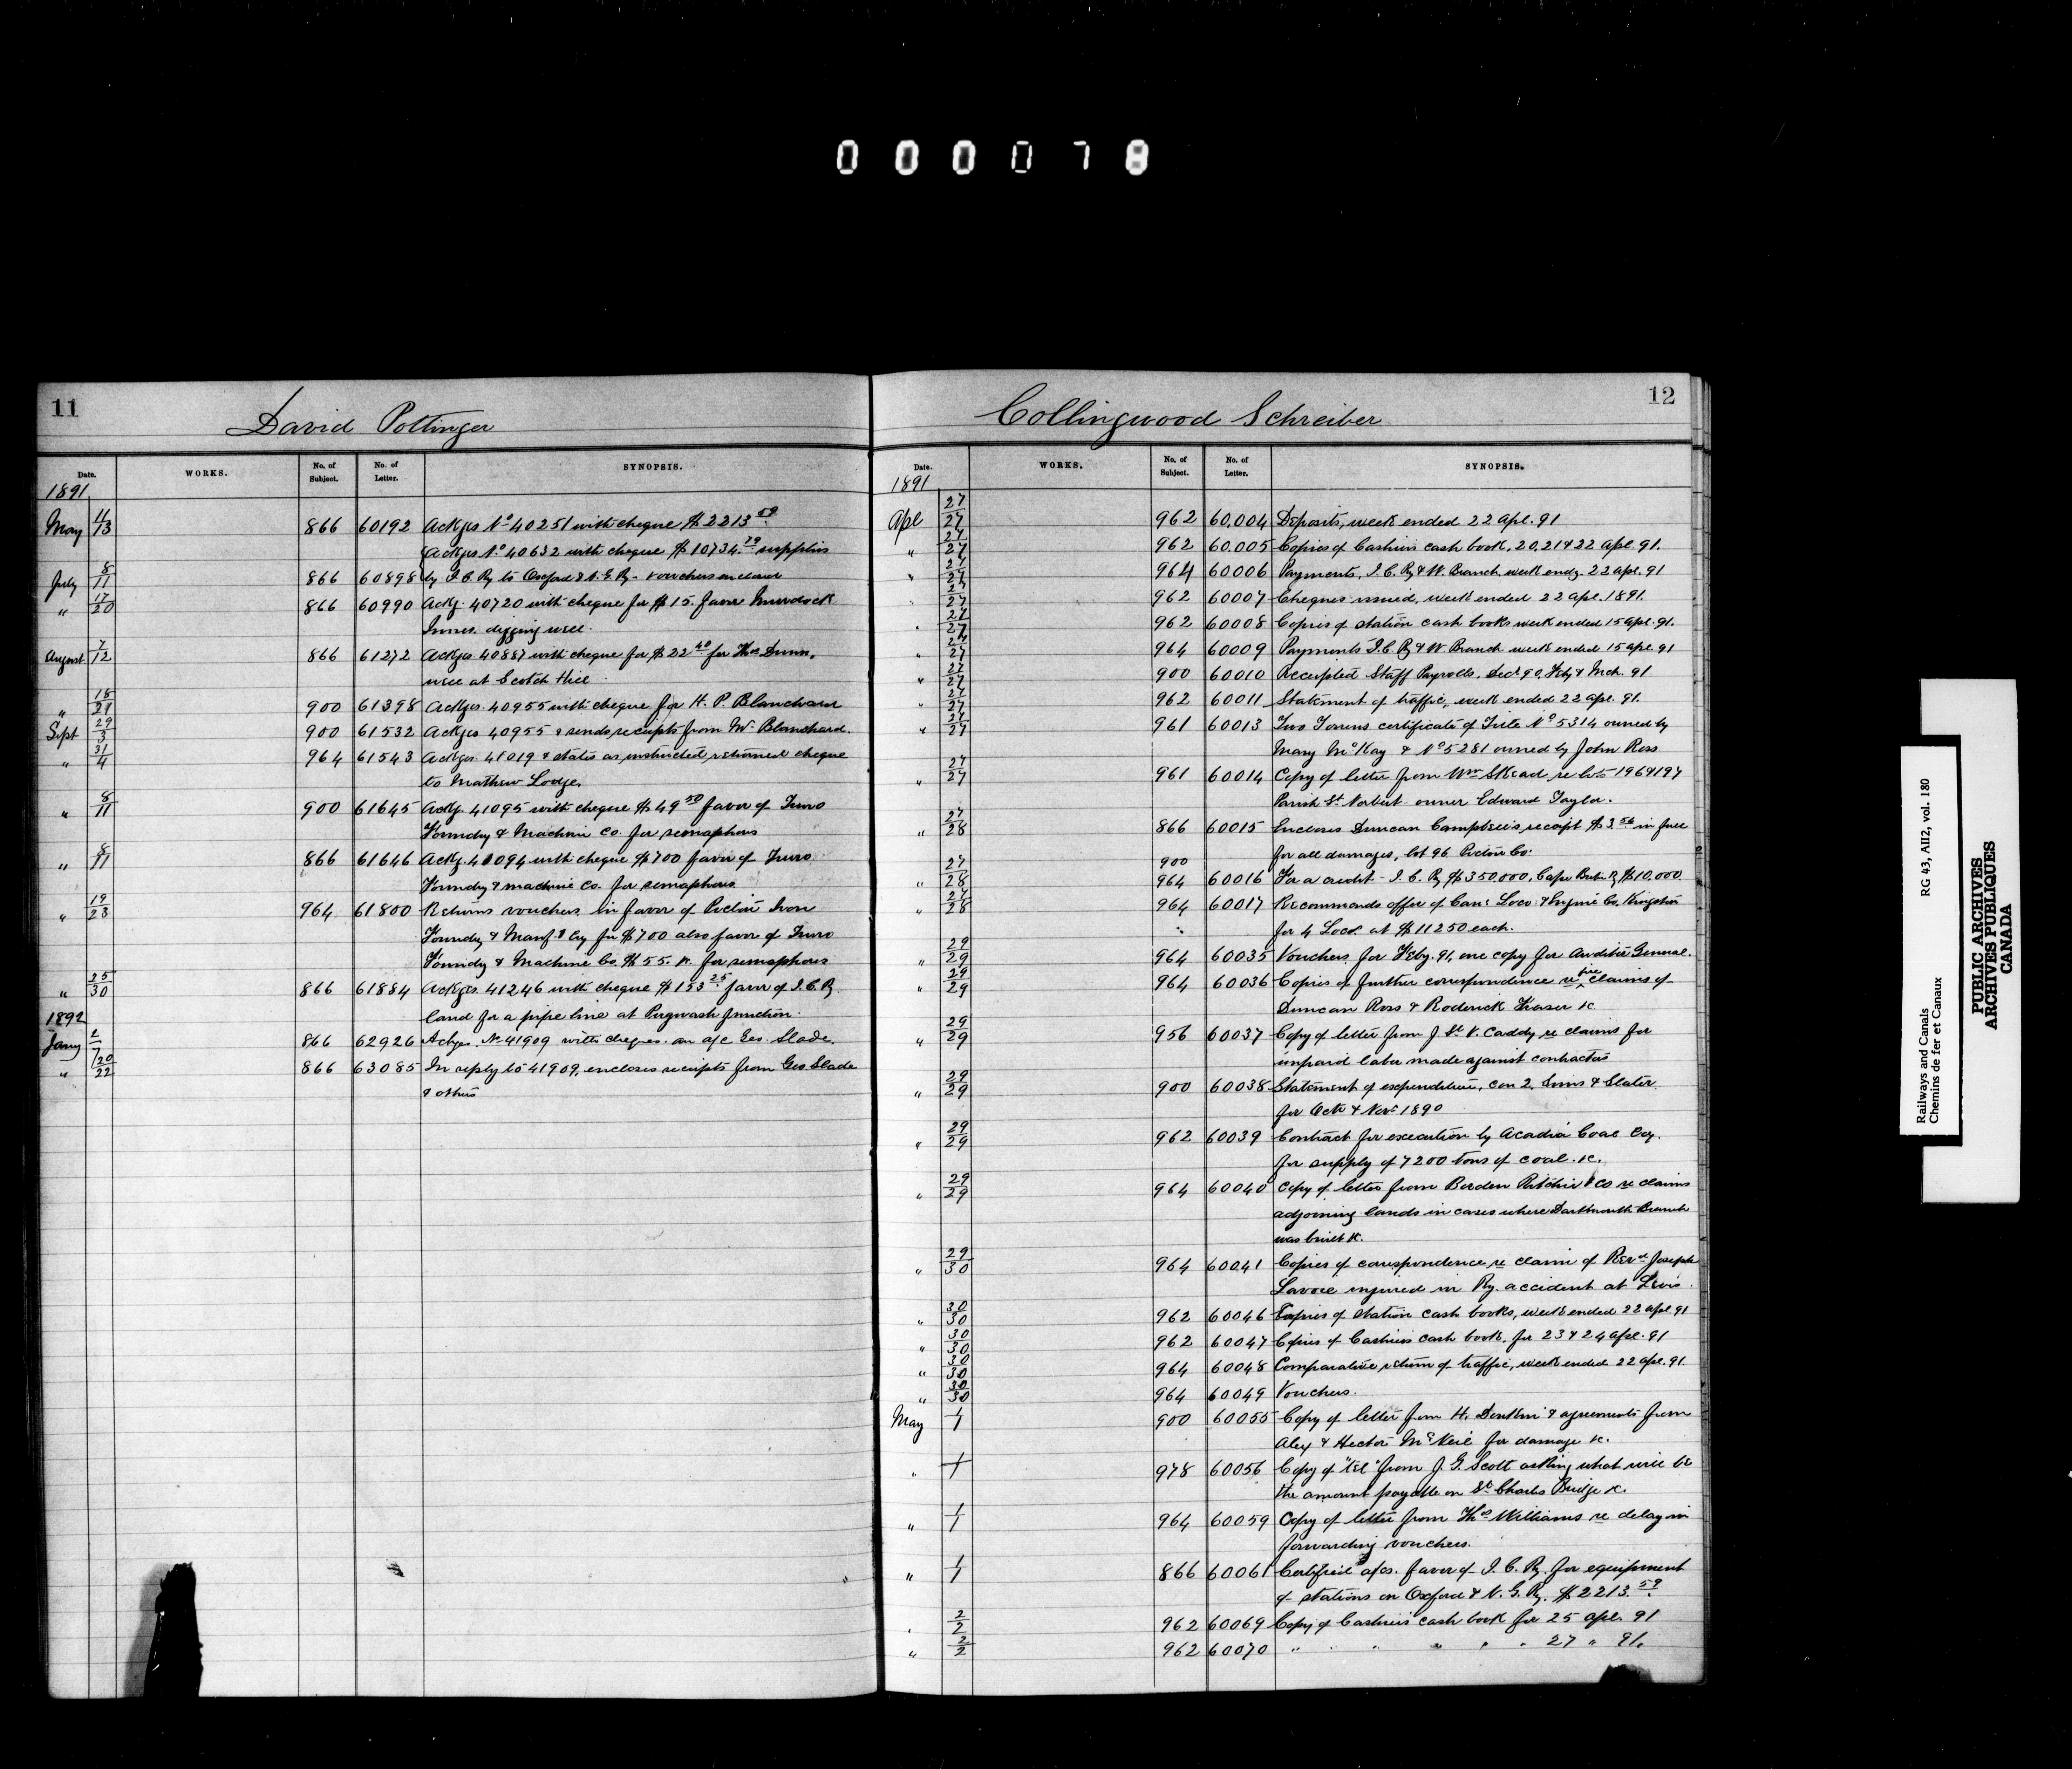 000078
11
David Pottinger
Date. WORKS. No. of Subject. No. of Letter. SYNOPSIS.
1891
May 11/13 866 60192 Ackges No 40251 with cheque $2213.59
Ackges No 40632 with cheque $10734.79 supplies
July 8/11 866 60898 by I.C. Ry to Oxford & N.G. Ry - vouchers enclosed
" 17/20 866 60990 Ackg. 40720 with cheque for $15. favor Murdock
Innes. digging well.
August 7/12 866 61272 Ackges 40887 with cheque for $22.40 for Thos Dunn.
well at Scotch Hill
" 18/21 900 61398 Ackges. 40955 with cheque for H. P. Blanchard
Sept 29/3 900 61532 Ackges 40955 & sends receipts from Mr. Blanchard.
" 31/4 964 61543 Ackges. 41019 & states as instructed, returned cheque
to Mathew Lodge.
" 8/11 900 61645 Ackg. 41095 with cheque $49.50 favor of Truro
Foundry & Machine Co. for semaphores
" 8/11 866 61646 Ackg. 41094 with cheque $700 favor of Truro
Foundry & machine Co. for semaphores
" 19/23 964 61800 Returns vouchers in favor of Pictou Iron
Foundry & Manf.g Coy for $700 also favor of Truro
Foundry & Machine Co. $55. &c. for semaphores
" 25/30 866 61884 Ackges. 41246 with cheque $133.25 favor of I.C. Ry.
land for a pipe line at Pugwash Junction.
1892
Jany 2/7 866 62926 Ackges. No 41909 with cheques. on a/c Geo. Slade.
" 20/22 866 63085 In reply to 41909, encloses receipts from Geo Slade
& others
12
Collingwood Schreiber
Date. WORKS. No. of Subject. No. of Letter. SYNOPSIS.
1891
Apl 27/27 962 60.004 Deposits, week ended 22 apl. 91
" 27/27 962 60.005 Copies of Cashiers cash book, 20, 21 & 22 apl. 91.
" 27/27 964 60006 Payments, I.C. Ry & W. Branch week endg. 22 apl. 91
" 27/27 962 60007 Cheques issued, week ended 22 apl. 1891.
" 27/27 962 60008 Copies of station cash books week ended 15 apl. 91.
" 27/27 964 60009 Payments I.C. Ry & W Branch week ended 15 apl. 91
" 27/27 900 60010 Receipted Staff Payrolls. Decr 90, Feby & Mch. 91
" 27/27 962 60011 Statement of traffic, week ended 22 apl. 91.
" 27/27 961 60013 Two Torrens certificate of Title No 5314 owned by
Mary McKay & No 5281 owned by John Ross
" 27/27 961 60014 Copy of letter from Wm Skead re lots 196 & 197
Parish St. Norbert owner Edward Taylor.
" 27/28 866 60015 Encloses Duncan Campbell's receipt $3.56 in full
for all damages, lot 96 Pictou Co.
" 27/28 900 964 60016 For a credit - I.C. Ry $350,000, Cape Bret. Ry $10,000
" 27/28 964 60017 Recommends offer of Can: Loco: & Engine Co. Kingston
for 4 Locos. at $11250 each.
" 29/29 964 60035 Vouchers for Feby. 91, one copy for Auditor General.
" 29/29 964 60036 Copies of further correspondence re fire claims of
Duncan Ross & Roderick Fraser &c
" 29/29 956 60037 Copy of letter from J. St. V. Caddy re claims for
unpaid labor made against contractors
" 29/29 900 60038 Statement of expenditure, con 2, Sims & Slater
for Octr & Novr 1890
" 29/29 962 60039 Contract for execution by Acadia Coal Coy.
for supply of 7200 tons of coal. &c.
" 29/29 964 60040 Copy of letter from Borden Ritchie & Co re claims
adjoining lands in cases where Dartmouth Branch
was built &c.
" 29/30 964 60041 Copies of correspondence re claim of Revd Joseph
Lavoie injured in Ry. accident at Levis.
" 30/30 962 60046 Copies of station cash books, week ended 22 apl 91
" 30/30 962 60047 Copies of Cashiers cash book, for 23 & 24 apl. 91
" 30/30 964 60048 Comparative return of traffic, week ended 22 apl. 91.
" 30/30 964 60049 Vouchers.
May 1/1 900 60055 Copy of letter from H. Donkin & agreements from
Alex & Hector McNeil for damage &c.
" 1/1 978 60056 Copy of "tel" from J. G. Scott asking what will be
the amount payable on St Charles Bridge &c.
" 1/1 964 60059 Copy of letter from Thos Williams re delay in
forwarding vouchers.
" 1/1 866 60061 Certified a/cs. favor of I.C. Ry. for equipment
of stations on Oxford & N.G. Ry. $2213.59
" 2/2 962 60069 Copy of Cashiers cash book for 25 apl. 91
" 2/2 962 60070 " " " " " 27 " 91.
Railways and Canals RG 43, AII2, vol. 180
Chemins de fer et Canaux
PUBLIC ARCHIVES
ARCHIVES PUBLIQUES
CANADA